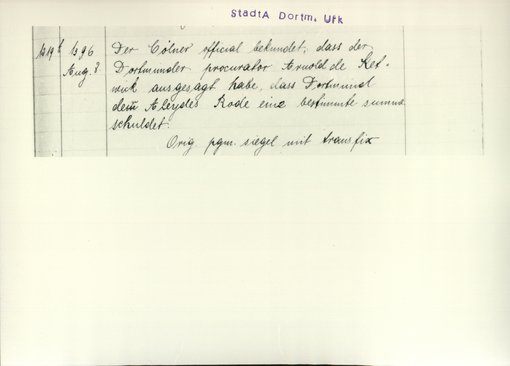 StadtA Dortm. Urk
1219 b 1396 Der Cölner official bekundet, dass der
Aug. 8 Dortmunder procurator Arnold de Ket-
wick ausgesagt habe, dass Dortmund
dem Aleydis Rode eine bestimmte summe
schuldet.
Orig pgm. siegel mit transfix